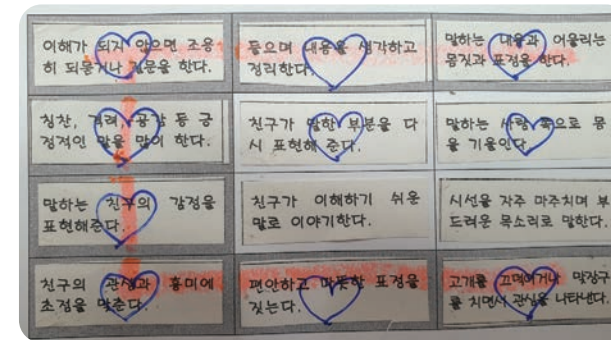 이해가 되지 않으면 조용
히 되묻거나 질문을 한다.
들으며 내용을 생각하고
정리한다.
말하는 내용과 어울리는
몸짓과 표정을 한다.
칭찬, 격려, 공감 등 긍
정적인 말을 많이 한다.
친구가 말한 부분을 다
시 표현해 준다.
말하는 사람 쪽으로 몸
을 기울인다.
말하는 친구의 감정을
표현해준다.
친구가 이해하기 쉬운
말로 이야기한다.
시선을 자주 마주치며 부
드러운 목소리로 말한다.
친구의 관심과 흥미에
초점을 맞춘다.
편안하고 따뜻한 표정을
짓는다.
고개를 끄덕이거나 맞장구
를 치면서 관심을 나타낸다.